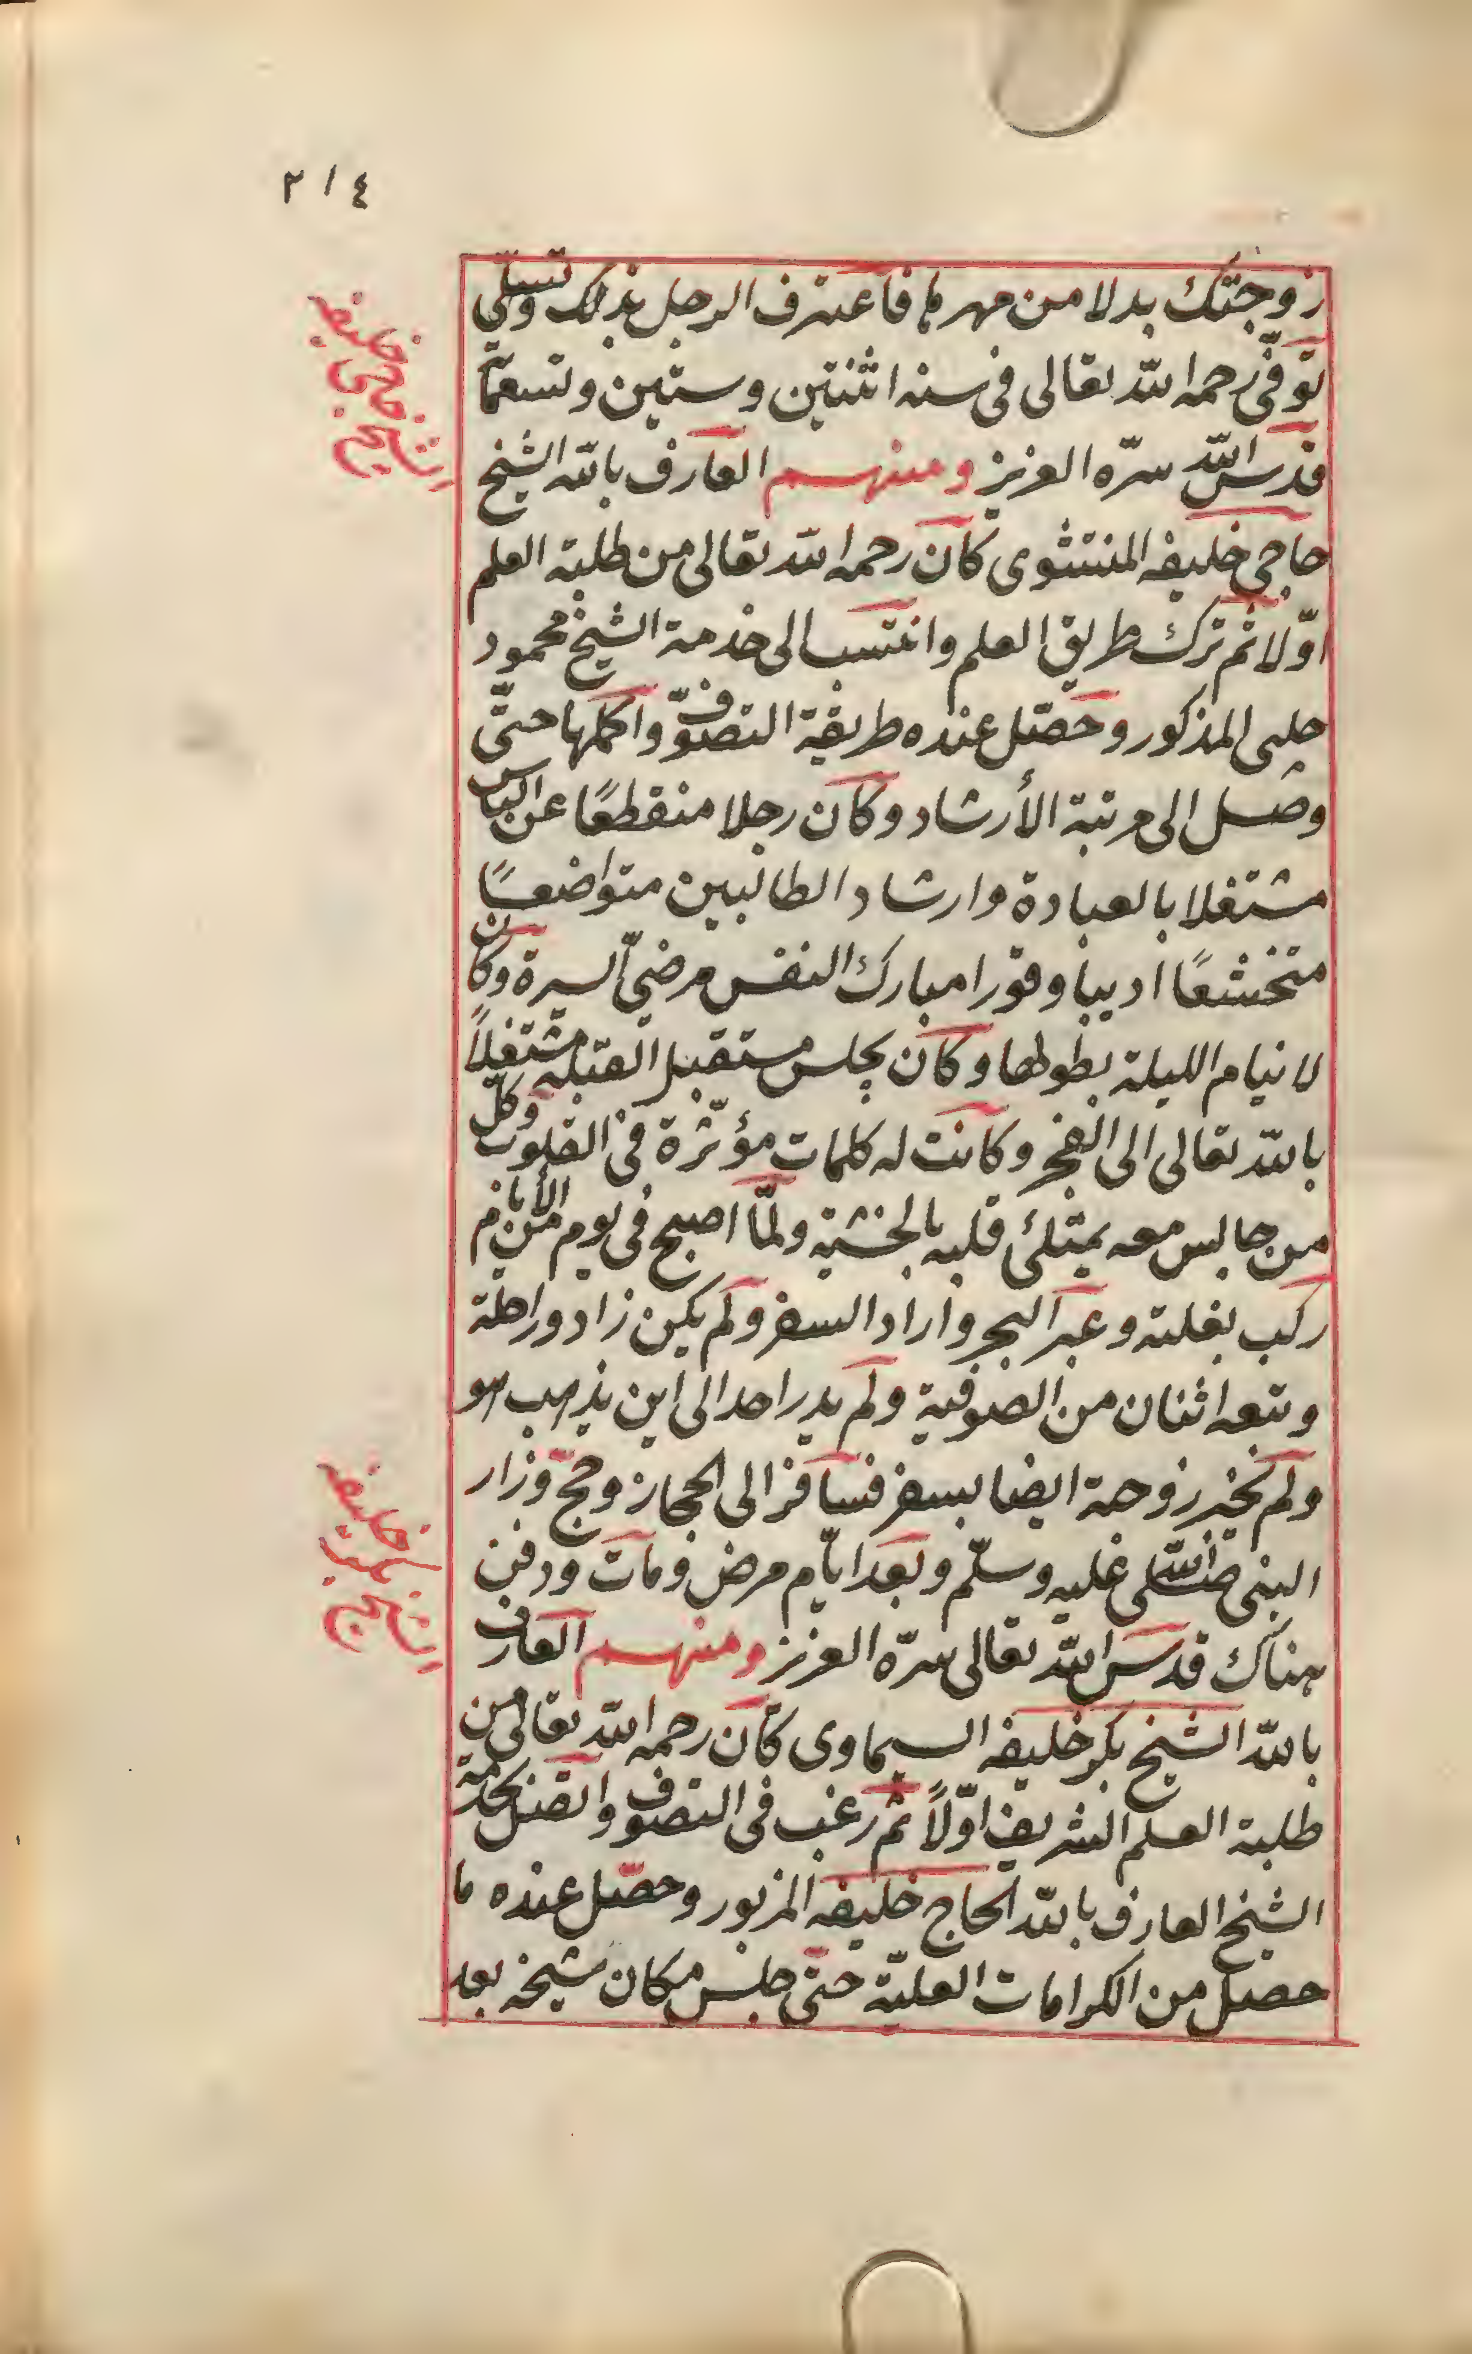 ٢١٤
زوجتك بدلا من مهرها فاعترف الرجل بذلك وتسلى
توفى رحمه الله تعالى فى سنه اثنتين وستين وتسعمائة
قدس الله سرّه العزيز ومنهم العارف بالله الشيخ
حاجى خليفه المنتشوى كان رحمه الله تعالى من طلبة العلم
اوّلا ثم ترك طريق العلم وانتسب الى خدمة الشيخ محمود
چلبى المذكور وحصّل عنده طريقة التصوّف واكملها حتّى
وصل الى مرتبة الأرشاد وكان رجلا منقطعًا عن الناس
مشتغلا بالعبادة وارشاد الطالبين متواضعًا
متخشعًا اديبا وقورا مبارك النفس مرضىّ السيرة وكان
لا ينام الليلة بطولها وكان يجلس مستقبل القبله مشتغلاً
بالله تعالى الى الفجر وكانت له كلمات مؤثّرة فى القلوب وكلّ
من جالس معه يمتلئ قلبه بالخشية ولمّا اصبح فى يوم من الأيام
ركب بغلته وعبر البحر واراد السفر ولم يكن زاد وراحلة
وتبعه اثنان من الصوفية ولم يدر احد الى اين يذهب هو
ولم يخبر زوجة ايضا بسفر فسافر الى الحجاز وحجّ وزار
النبى صلى الله عليه وسلّم وبعد ايّام مرض ومات ودفن
هناك قدس الله تعالى سرّه العزيز ومنهم العارف
بالله الشيخ بكر خليفه السيماوى كان رحمه الله تعالى من
طلبة العلم الشريف اوّلاً ثم رغب فى التصوف واتصل بخدمة
الشيخ العارف بالله الحاج خليفه المزبور وحصّل عنده ما
حصل من الكرامات العليّة حتى جلس مكان شيخه بعد
الشيخ حاجى خليفه
الشيخ بكر خليفه